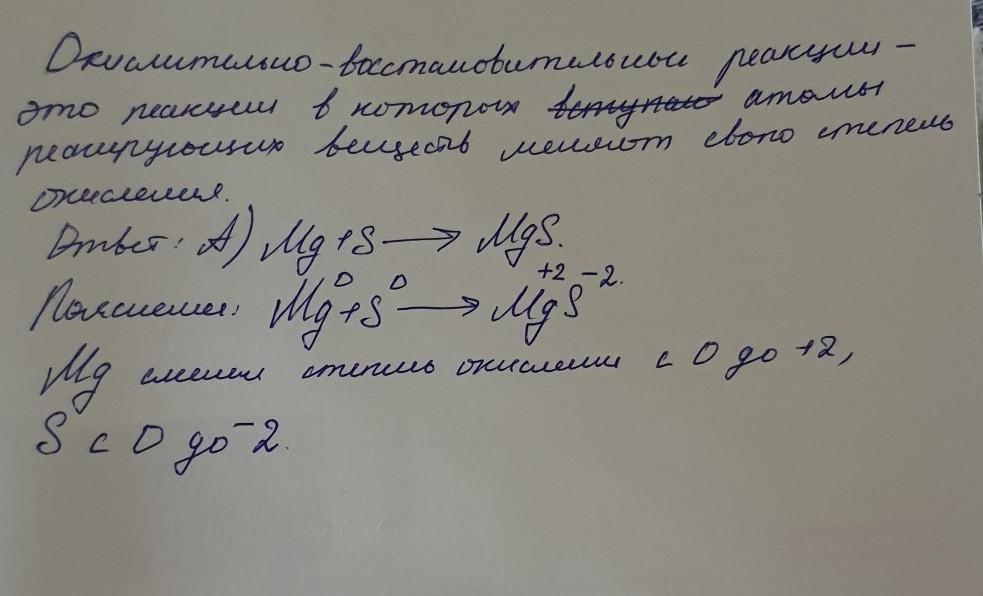 Окислительно-восстановительные реакции -
это реакции в которых вступают атомы
реагирующих веществ меняют свою степень
окисления.
Ответ: А) Mg+S⟶MgS.
Пояснение: Mg⁰+S⁰⟶Mg⁺²S⁻².
Mg сменил степень окисления с 0 до +2,
S с 0 до -2.